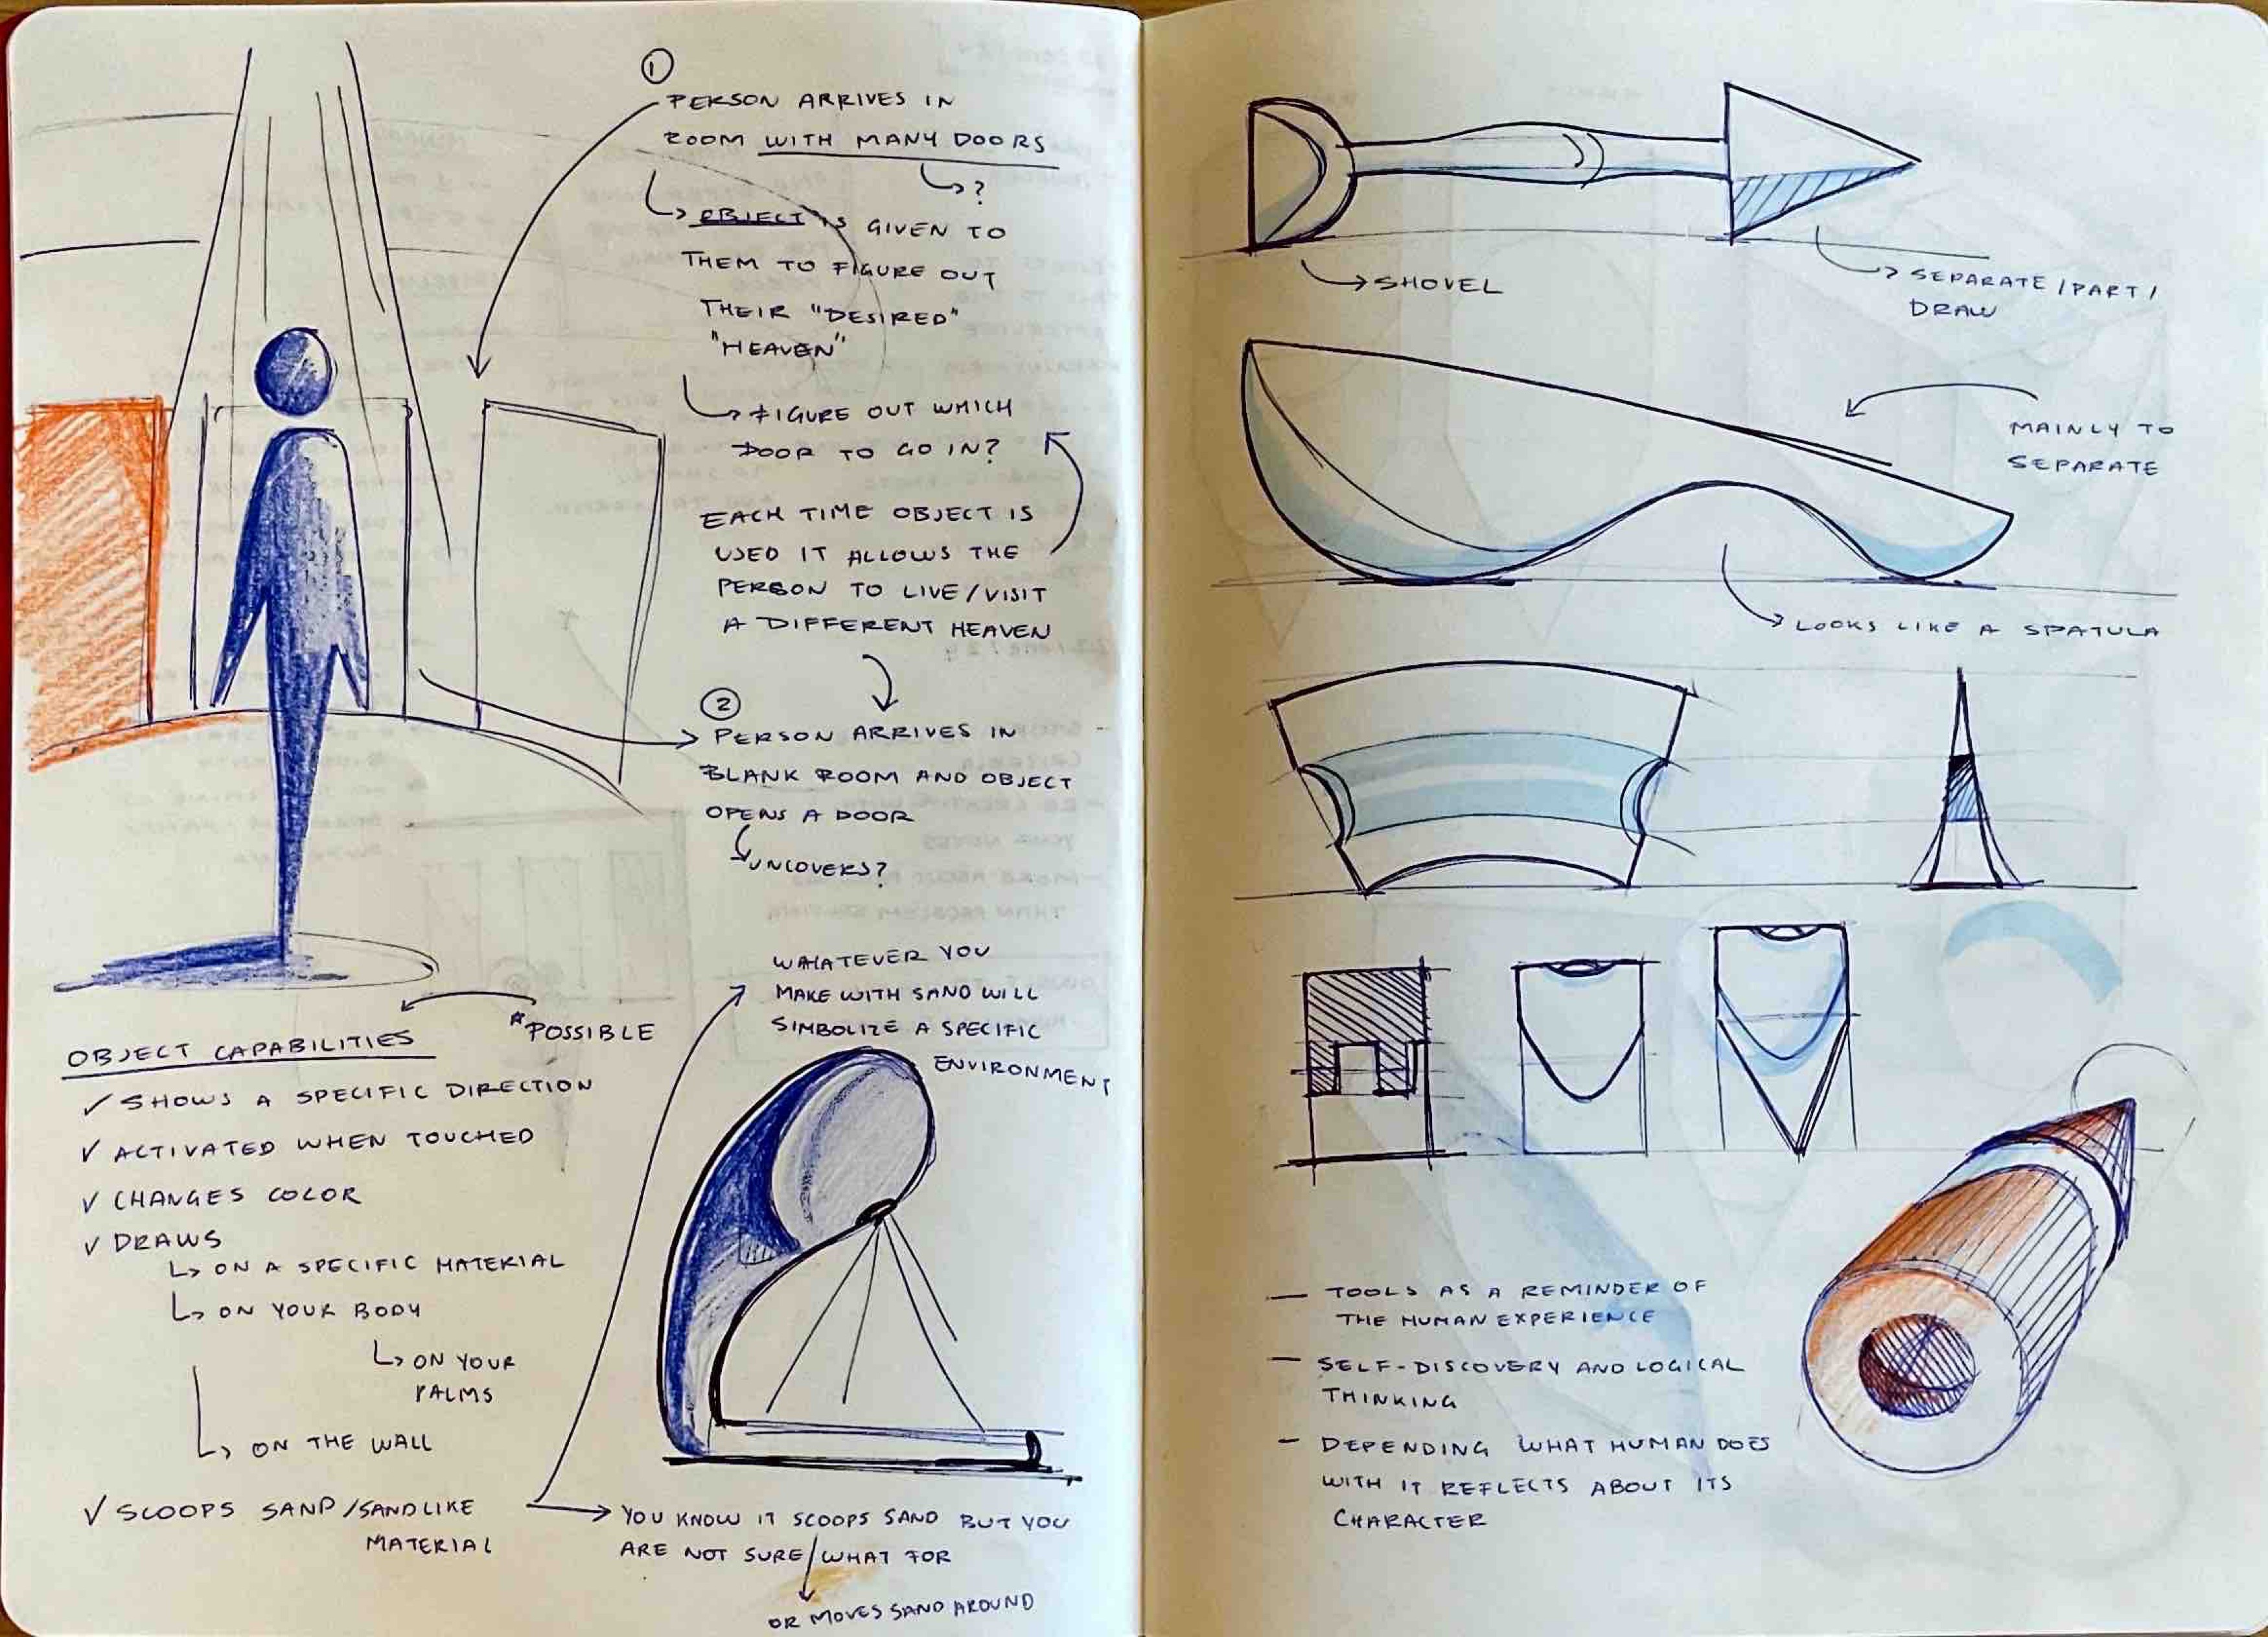 ①
PERSON ARRIVES IN
ROOM WITH MANY DOORS
?
OBJECT IS GIVEN TO
THEM TO FIGURE OUT
THEIR "DESIRED"
"HEAVEN"
FIGURE OUT WHICH
DOOR TO GO IN?
EACH TIME OBJECT IS
USED IT ALLOWS THE
PERSON TO LIVE/VISIT
A DIFFERENT HEAVEN
②
PERSON ARRIVES IN
BLANK ROOM AND OBJECT
OPENS A DOOR
UNCOVERS?
WHATEVER YOU
MAKE WITH SAND WILL
SIMBOLIZE A SPECIFIC
ENVIRONMENT
*POSSIBLE
OBJECT CAPABILITIES
✓ SHOWS A SPECIFIC DIRECTION
✓ ACTIVATED WHEN TOUCHED
✓ CHANGES COLOR
✓ DRAWS
ON A SPECIFIC MATERIAL
ON YOUR BODY
ON YOUR
PALMS
ON THE WALL
✓ SCOOPS SAND/SANDLIKE
MATERIAL
YOU KNOW IT SCOOPS SAND BUT YOU
ARE NOT SURE WHAT FOR
OR MOVES SAND AROUND
SHOVEL
SEPARATE/PART/
DRAW
MAINLY TO
SEPARATE
LOOKS LIKE A SPATULA
— TOOLS AS A REMINDER OF
THE HUMAN EXPERIENCE
— SELF-DISCOVERY AND LOGICAL
THINKING
- DEPENDING WHAT HUMAN DOES
WITH IT REFLECTS ABOUT ITS
CHARACTER